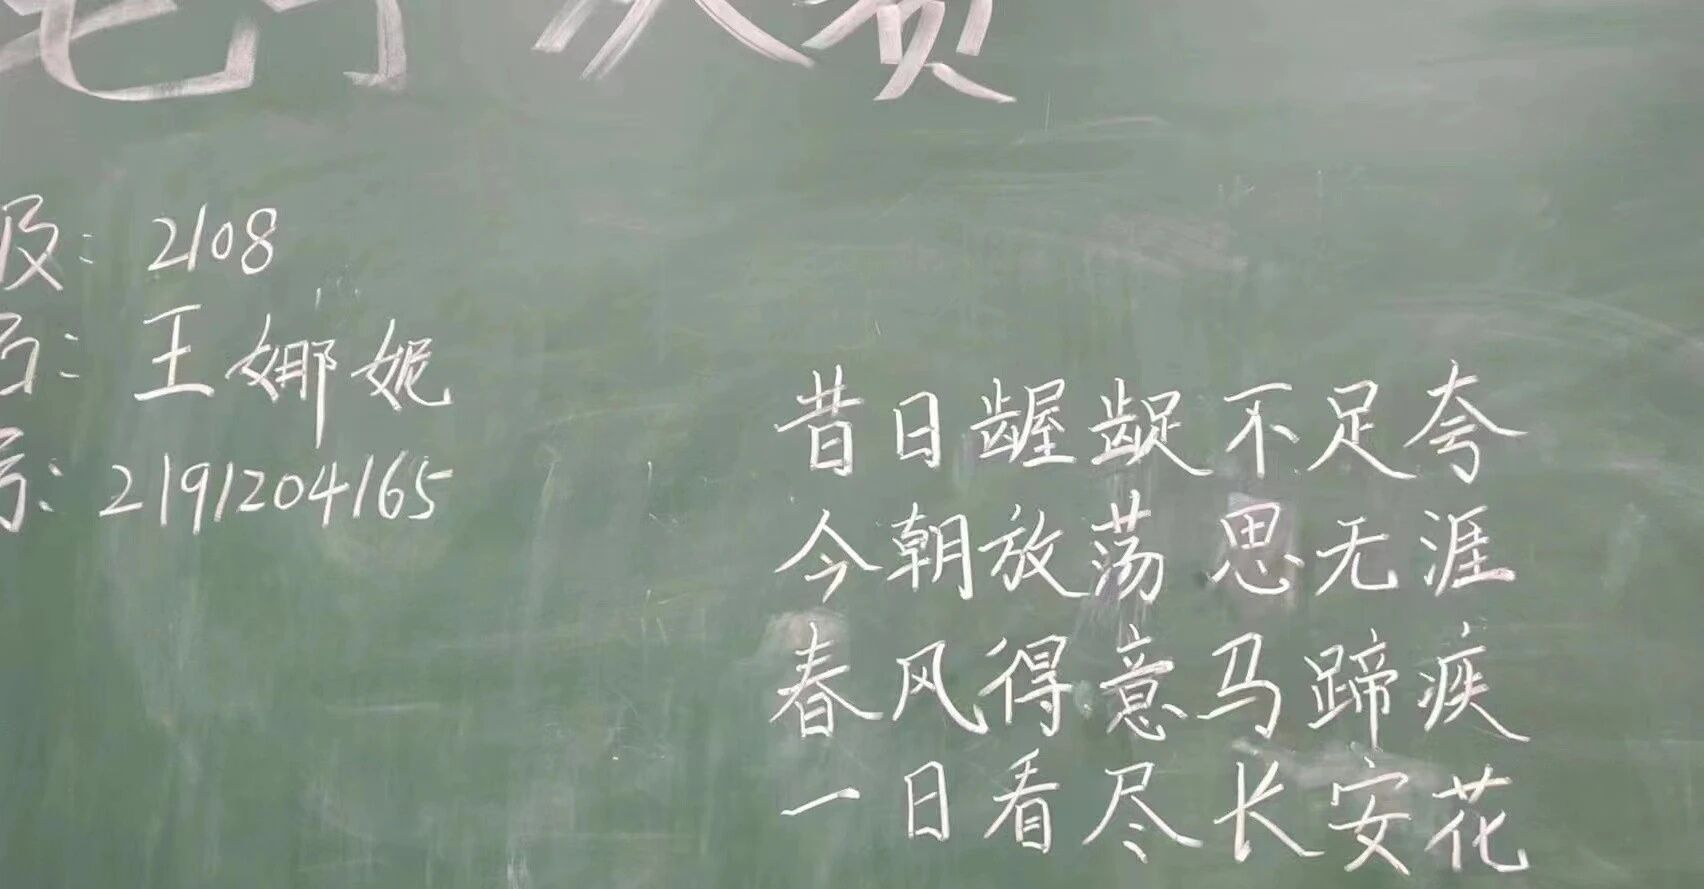 级: 2108
名: 王娜妮
号: 2191204165
昔日龌龊不足夸
今朝放荡思无涯
春风得意马蹄疾
一日看尽长安花